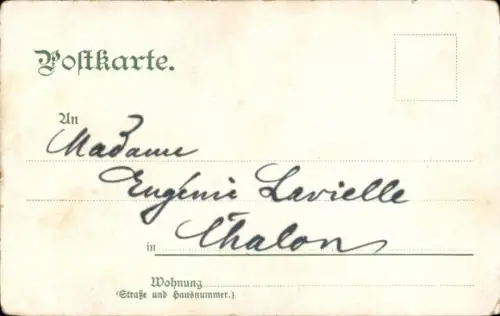 Postkarte.
An
Madame
Eugénie Lavielle
in Chalon
Wohnung
(Straße und Hausnummer.)